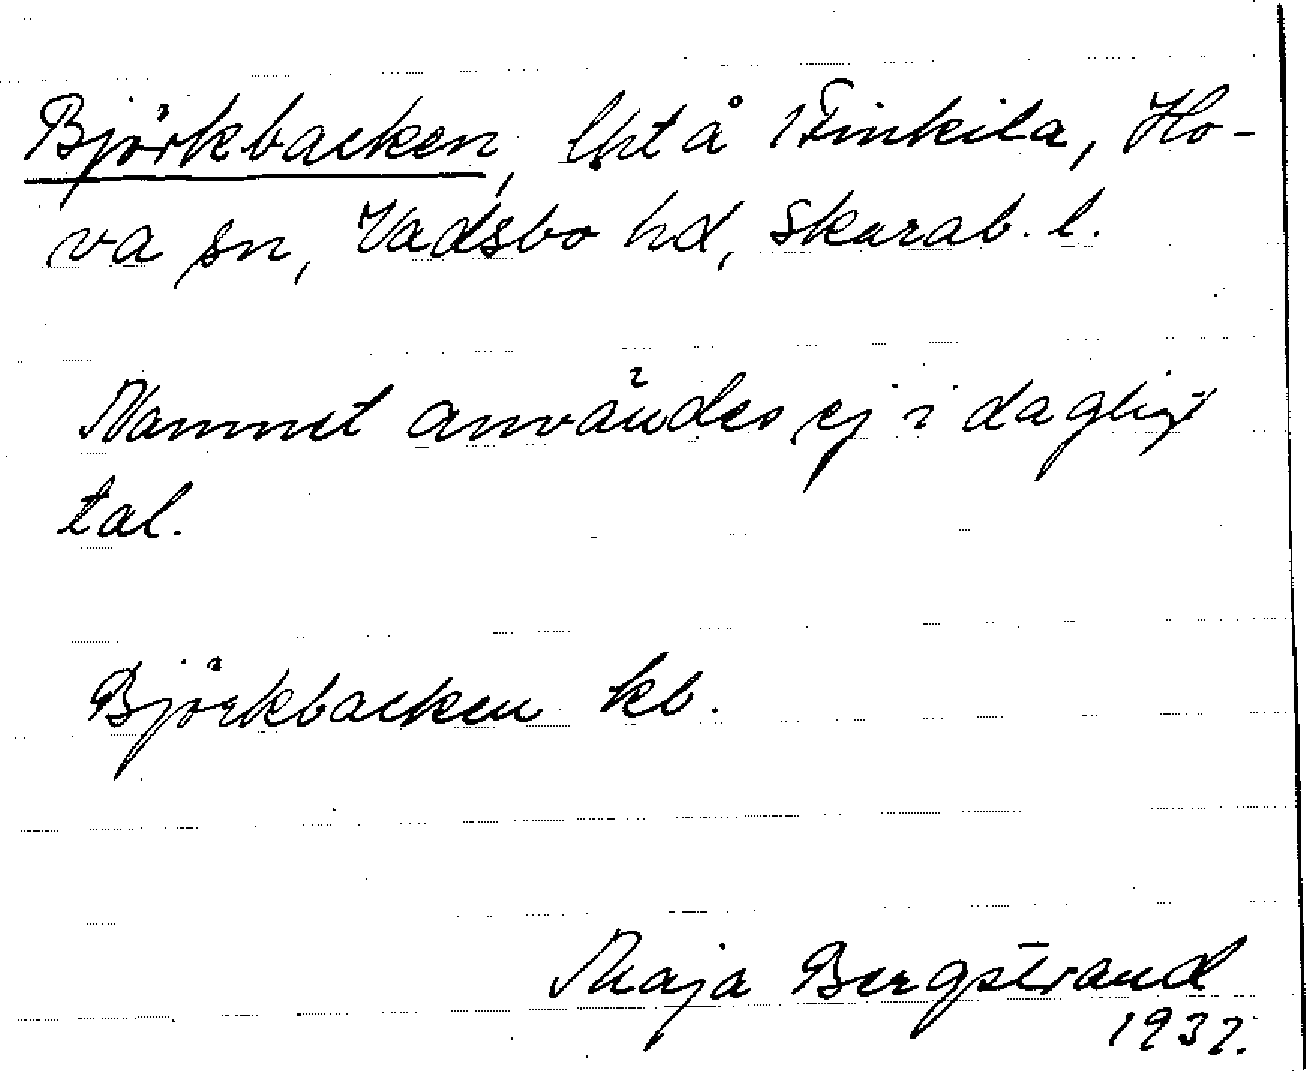 Björkbacken, lht å Finkila, Ho-
va sn, Vadsbo hd, Skarab. l.
Namnet användes ej i dagligt
tal.
Björkbacken kb.
Maja Bergstrand
1937.